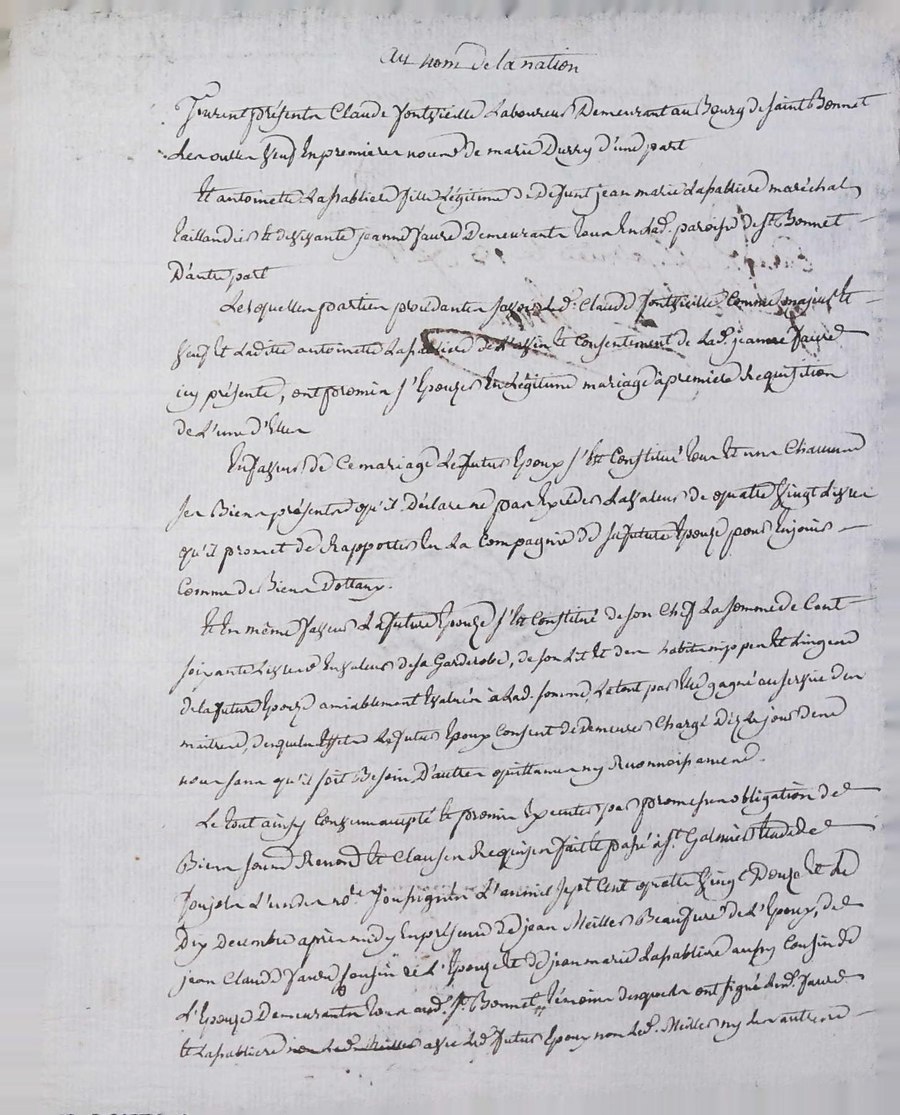 au nom de la nation
Furent présents Claude fontvieille Laboureur Demeurant au Bourg de Saint Bonnet
Les oulles veuf En premieres noces de marie Durry d'une part
Et antoinette Lapabliere fille Légitime de Defunt jean marie Lapabliere maréchal
Taillandier Et de vivante jeanne faure Demeurants tous En lad. paroisse de St. Bonnet
D'autre part
Lesquelles parties procédantes savoir Led. Claude fontvieille Comme majeur Et
veuf Et Ladite antoinette Lapabliere de L'avis Et Consentement de Lad. jeanne faure
icy présente, ont promis s'Epouser En Légitime mariage à premiere Requisition
de L'une d'Elles
En faveur de Ce mariage Le futur Epoux s'Est Constitué tous Et uns Chacuns
ses Biens présents qu'il Déclare ne pas Exceder La valeur de quatre vingt Livres
qu'il promet de Rapporter En La Compagnie de sa future Epouse pour En jouir
Comme de Biens Dottaux.
Et En même faveur La future Epouse s'Est Constitué de son Chef La somme de Cent
soixante Livres En valeur de sa Garderobe, de son Lit Et des habits nippes et Linges
de la future Epouse amiablement Evalués à Lad. somme, Le tout par Elle gagné au service des
maitres, desquels Effets Le futur Epoux Consent de Demeurer Chargé Dès Le jour des
noces sans qu'il soit Besoin D'autres quittances ny Reconnoissances.
Le tout ainsy Convenu accepté Et promis Executer par promesses obligation de
Biens soumis Renond Et Clauses Requises fait Et passé à St. Galmier Etude de
Joujols L'un des nores soussignés L'année sept Cent quatre vingt Douze Et Le
Dix Decembre après midy En présence de jean Meiller Beaufrere de L'Epoux, de
jean Claude faure Cousin de L'Epouse Et de jean marie Lapabliere aussy Cousin de
L'Epouse Demeurants tous aud. St. Bonnet, témoins desquels ont signé Led. faure
Et Lapabliere avec Led. futur Epoux non Led. Meiller ny Les autres